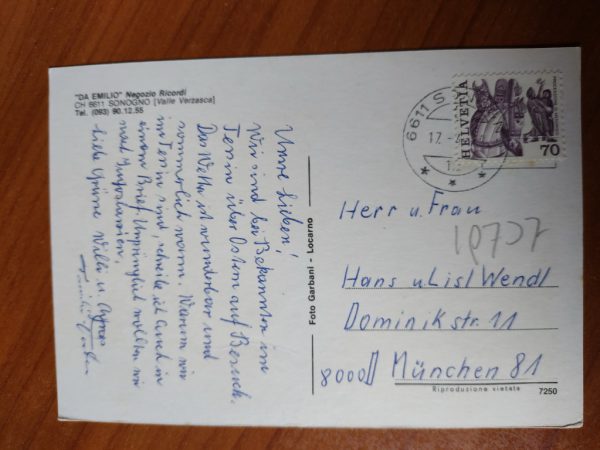 "DA EMILIO" Negozio Ricordi
CH 6611 SONOGNO [Valle Verzasca]
Tel. (093) 90.12.55
Unsre Lieben!
Wir sind bei Bekannten im
Tessin über Ostern auf Besuch.
Das Wetter ist wunderbar und
sommerlich warm. Warum wir
im Tessin sind, schreibe ich Euch in
einem Brief. Ursprünglich wollten wir
nach Jugoslawien.
Liebe Grüsse Willi u. Agnes
Foto Garbani - Locarno
6611 S
17.
HELVETIA
70
Herr u. Frau
Hans u Lisl Wendl
Dominikstr. 11
8000 München 81
Riproduzione vietata
7250